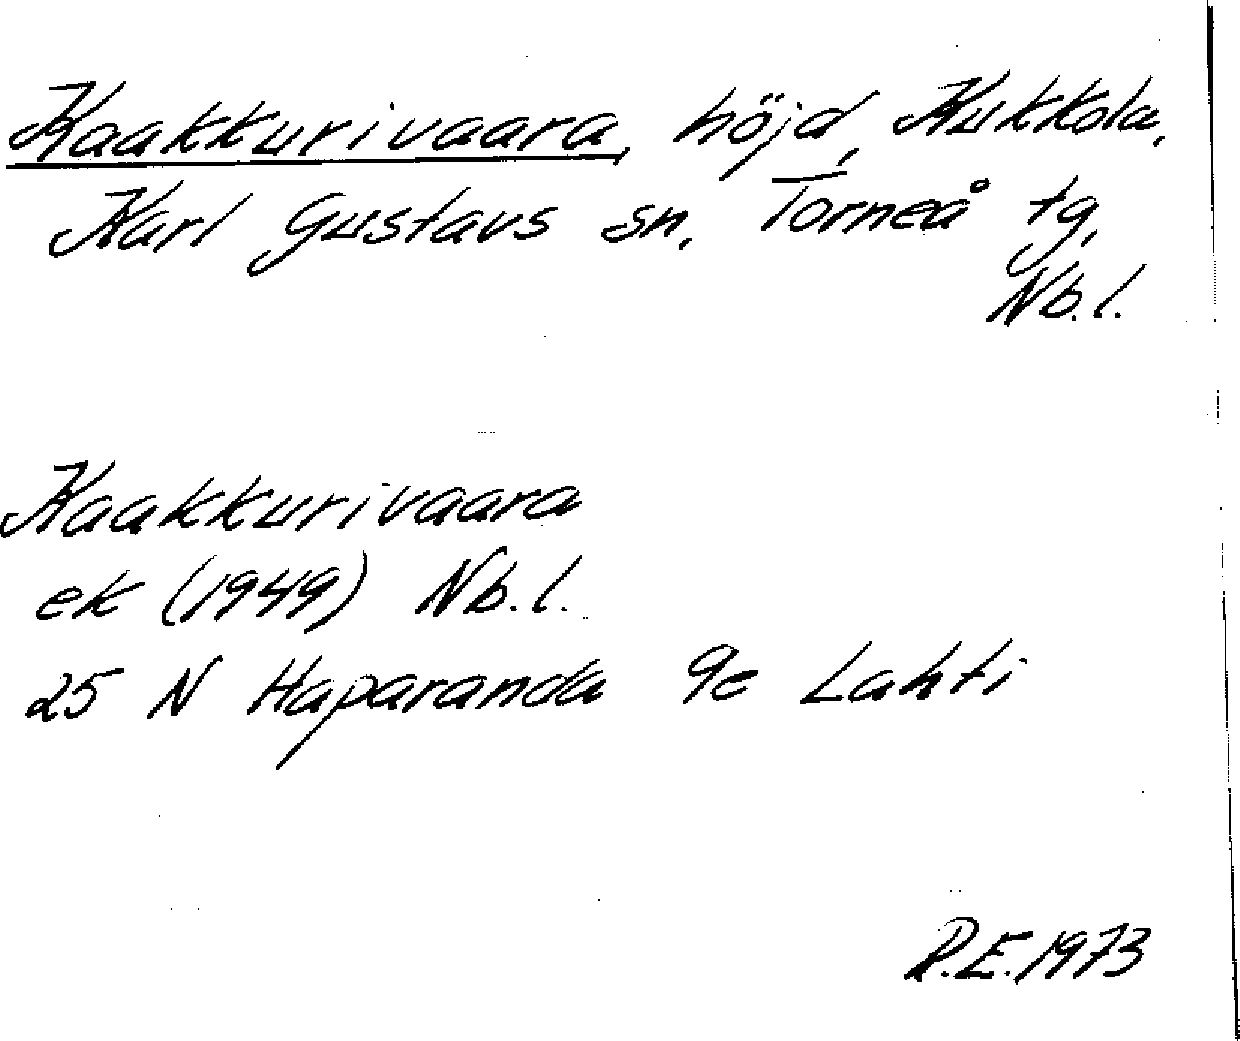 Kaakkurivaara, höjd, Kukkola,
Karl Gustavs sn, Torneå tg,
Nb.l.
Kaakkurivaara
ek (1949) Nb.l.
25 N Haparanda 9e Lahti
R.E. 1973